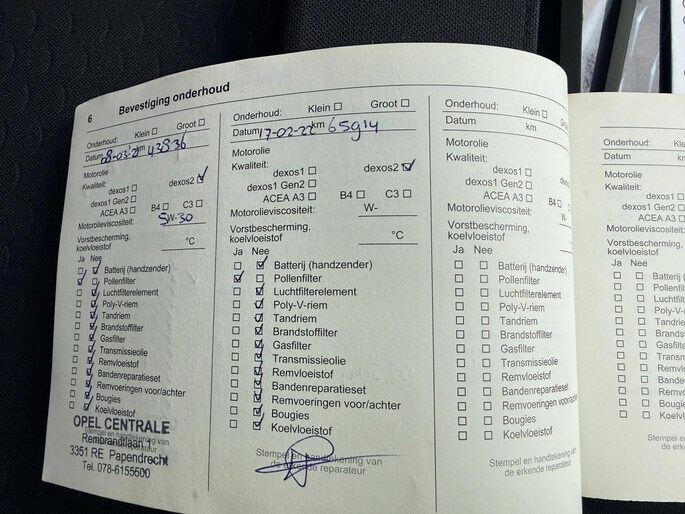 6 Bevestiging onderhoud
Onderhoud: Klein Groot
Datum 08-03-21 km 43836
Motorolie
Kwaliteit:
dexos1 dexos2
dexos1 Gen2
ACEA A3 B4 C3
Motorolieviscositeit: 5W-30
Vorstbescherming,
koelvloeistof °C
Ja Nee
Batterij (handzender)
Pollenfilter
Luchtfilterelement
Poly-V-riem
Tandriem
Brandstoffilter
Gasfilter
Transmissieolie
Remvloeistof
Bandenreparatieset
Remvoeringen voor/achter
Bougies
Koelvloeistof
OPEL CENTRALE
Stempel en handtekening van
Rembrandtlaan 1
de erkende reparateur
3351 RE Papendrecht
Tel. 078-6155500
Onderhoud: Klein Groot
Datum 17-02-22 km 65914
Motorolie
Kwaliteit:
dexos1 dexos2
dexos1 Gen2
ACEA A3 B4 C3
Motorolieviscositeit: W-
Vorstbescherming,
koelvloeistof °C
Ja Nee
Batterij (handzender)
Pollenfilter
Luchtfilterelement
Poly-V-riem
Tandriem
Brandstoffilter
Gasfilter
Transmissieolie
Remvloeistof
Bandenreparatieset
Remvoeringen voor/achter
Bougies
Koelvloeistof
Stempel en handtekening van
de erkende reparateur
Onderhoud: Klein Groot
Datum km
Motorolie
Kwaliteit:
dexos1 dexos
dexos1 Gen2
ACEA A3 B4 C3
Motorolieviscositeit: W-
Vorstbescherming,
koelvloeistof °C
Ja Nee
Batterij (handzender)
Pollenfilter
Luchtfilterelement
Poly-V-riem
Tandriem
Brandstoffilter
Gasfilter
Transmissieolie
Remvloeistof
Bandenreparatieset
Remvoeringen voor/achter
Bougies
Koelvloeistof
Stempel en handtekening van
de erkende reparateur
Onderhoud: Klein
Datum km
Motorolie
Kwaliteit:
dexos1
dexos1 Gen2
ACEA A3
Motorolieviscositeit:
Vorstbescherming,
koelvloeistof
Ja Nee
Batterij (
Pollenfilter
Luchtfilte
Poly-V-r
Tandriem
Brandsto
Gasfilter
Transm
Remvlo
Banden
Remvo
Bougies
Koelvlo
Stempel en
de erk